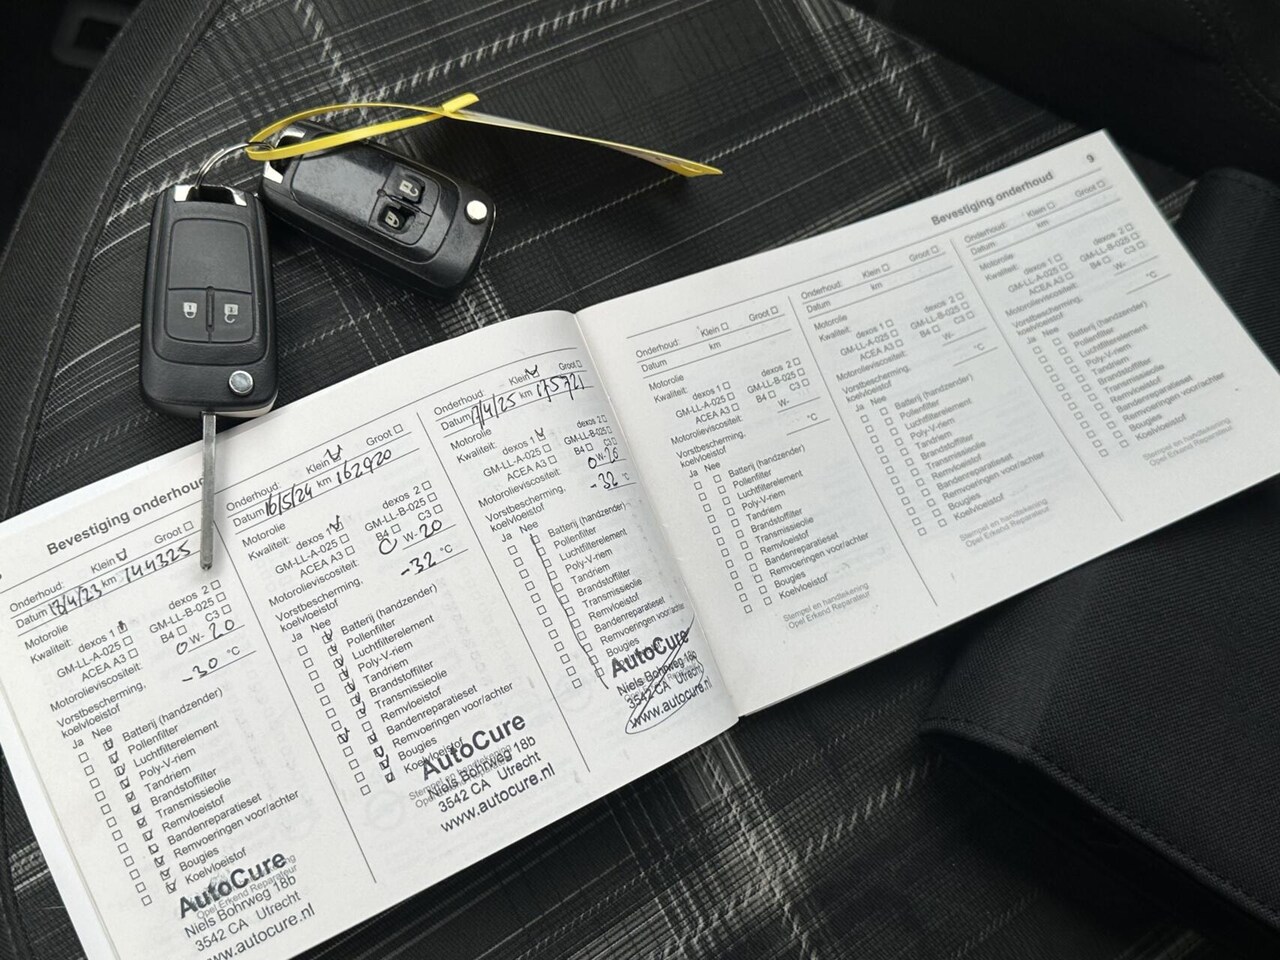 Bevestiging onderhoud
Onderhoud: Klein Groot
Datum 13/4/23 km 144325
Motorolie
Kwaliteit: dexos 1 dexos 2
GM-LL-A-025 GM-LL-B-025
ACEA A3 B4 C3
Motorolieviscositeit: 0 W-20
Vorstbescherming,
koelvloeistof -30 °C
Ja Nee
Batterij (handzender)
Pollenfilter
Luchtfilterelement
Poly-V-riem
Tandriem
Brandstoffilter
Transmissieolie
Remvloeistof
Bandenreparatieset
Remvoeringen voor/achter
Bougies
Koelvloeistof
AutoCure
Opel Erkend Reparateur
Niels Bohrweg 18b
3542 CA Utrecht
www.autocure.nl
Onderhoud: Klein Groot
Datum 16/5/24 km 162920
Motorolie
Kwaliteit: dexos 1 dexos 2
GM-LL-A-025 GM-LL-B-025
ACEA A3 B4 C3
Motorolieviscositeit: 0 W-20
Vorstbescherming,
koelvloeistof -32 °C
Ja Nee
Batterij (handzender)
Pollenfilter
Luchtfilterelement
Poly-V-riem
Tandriem
Brandstoffilter
Transmissieolie
Remvloeistof
Bandenreparatieset
Remvoeringen voor/achter
Bougies
Koelvloeistof
AutoCure
Stempel en handtekening
Niels Bohrweg 18b
3542 CA Utrecht
www.autocure.nl
Onderhoud: Klein Groot
Datum 17/4/25 km 175721
Motorolie
Kwaliteit: dexos 1 dexos 2
GM-LL-A-025 GM-LL-B-025
ACEA A3 B4 C3
Motorolieviscositeit: 0 W-20
Vorstbescherming,
koelvloeistof -32 °C
Ja Nee
Batterij (handzender)
Pollenfilter
Luchtfilterelement
Poly-V-riem
Tandriem
Brandstoffilter
Transmissieolie
Remvloeistof
Bandenreparatieset
Remvoeringen voor/achter
Bougies
AutoCure
Niels Bohrweg 18b
3542 CA Utrecht
www.autocure.nl
9
Bevestiging onderhoud
Onderhoud: Klein Groot
Datum km
Motorolie
Kwaliteit: dexos 1 dexos 2
GM-LL-A-025 GM-LL-B-025
ACEA A3 B4 C3
Motorolieviscositeit: W-
Vorstbescherming,
koelvloeistof °C
Ja Nee
Batterij (handzender)
Pollenfilter
Luchtfilterelement
Poly-V-riem
Tandriem
Brandstoffilter
Transmissieolie
Remvloeistof
Bandenreparatieset
Remvoeringen voor/achter
Bougies
Koelvloeistof
Stempel en handtekening
Opel Erkend Reparateur
Onderhoud: Klein Groot
Datum km
Motorolie
Kwaliteit: dexos 1 dexos 2
GM-LL-A-025 GM-LL-B-025
ACEA A3 B4 C3
Motorolieviscositeit: W-
Vorstbescherming,
koelvloeistof °C
Ja Nee
Batterij (handzender)
Pollenfilter
Luchtfilterelement
Poly-V-riem
Tandriem
Brandstoffilter
Transmissieolie
Remvloeistof
Bandenreparatieset
Remvoeringen voor/achter
Bougies
Koelvloeistof
Stempel en handtekening
Opel Erkend Reparateur
Onderhoud: Klein Groot
Datum km
Motorolie
Kwaliteit: dexos 1 dexos 2
GM-LL-A-025 GM-LL-B-025
ACEA A3 B4 C3
Motorolieviscositeit: W-
Vorstbescherming,
koelvloeistof °C
Ja Nee
Batterij (handzender)
Pollenfilter
Luchtfilterelement
Poly-V-riem
Tandriem
Brandstoffilter
Transmissieolie
Remvloeistof
Bandenreparatieset
Remvoeringen voor/achter
Bougies
Koelvloeistof
Stempel en handtekening
Opel Erkend Reparateur